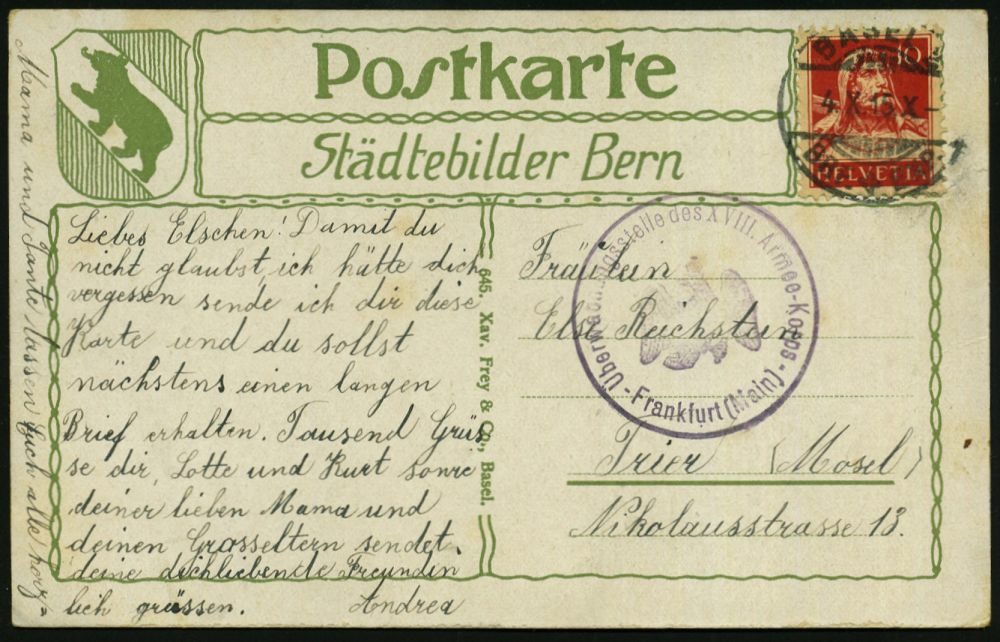 Postkarte
Städtebilder Bern
BASEL
4.X.15.X-
10
HELVETIA
Liebes Elschen! Damit du
nicht glaubst, ich hätte dich
vergessen sende ich dir diese
Karte und du sollst
nächstens einen langen
Brief erhalten. Tausend Grüs
se dir, Lotte und Kurt sowie
deiner lieben Mama und
deinen Grosseltern sendet,
deine dichliebende Freundin
Andrea
Mama und Tante lassen Euch alle herz=
lich grüssen.
645. Xav. Frey & Co., Basel.
Überwachungsstelle des XVIII. Armee-Korps-
-Frankfurt (Main)-
Fräulein
Else Reichstein
Trier (Mosel)
Nikolausstrasse 13.